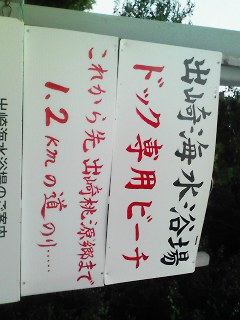 出崎海水浴場
ドック専用ビーチ
これから先出崎桃源郷まで
1.2Kmの道のり.....
出崎海水浴場のご案内